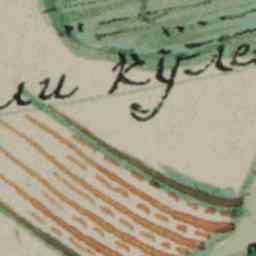 ли куле